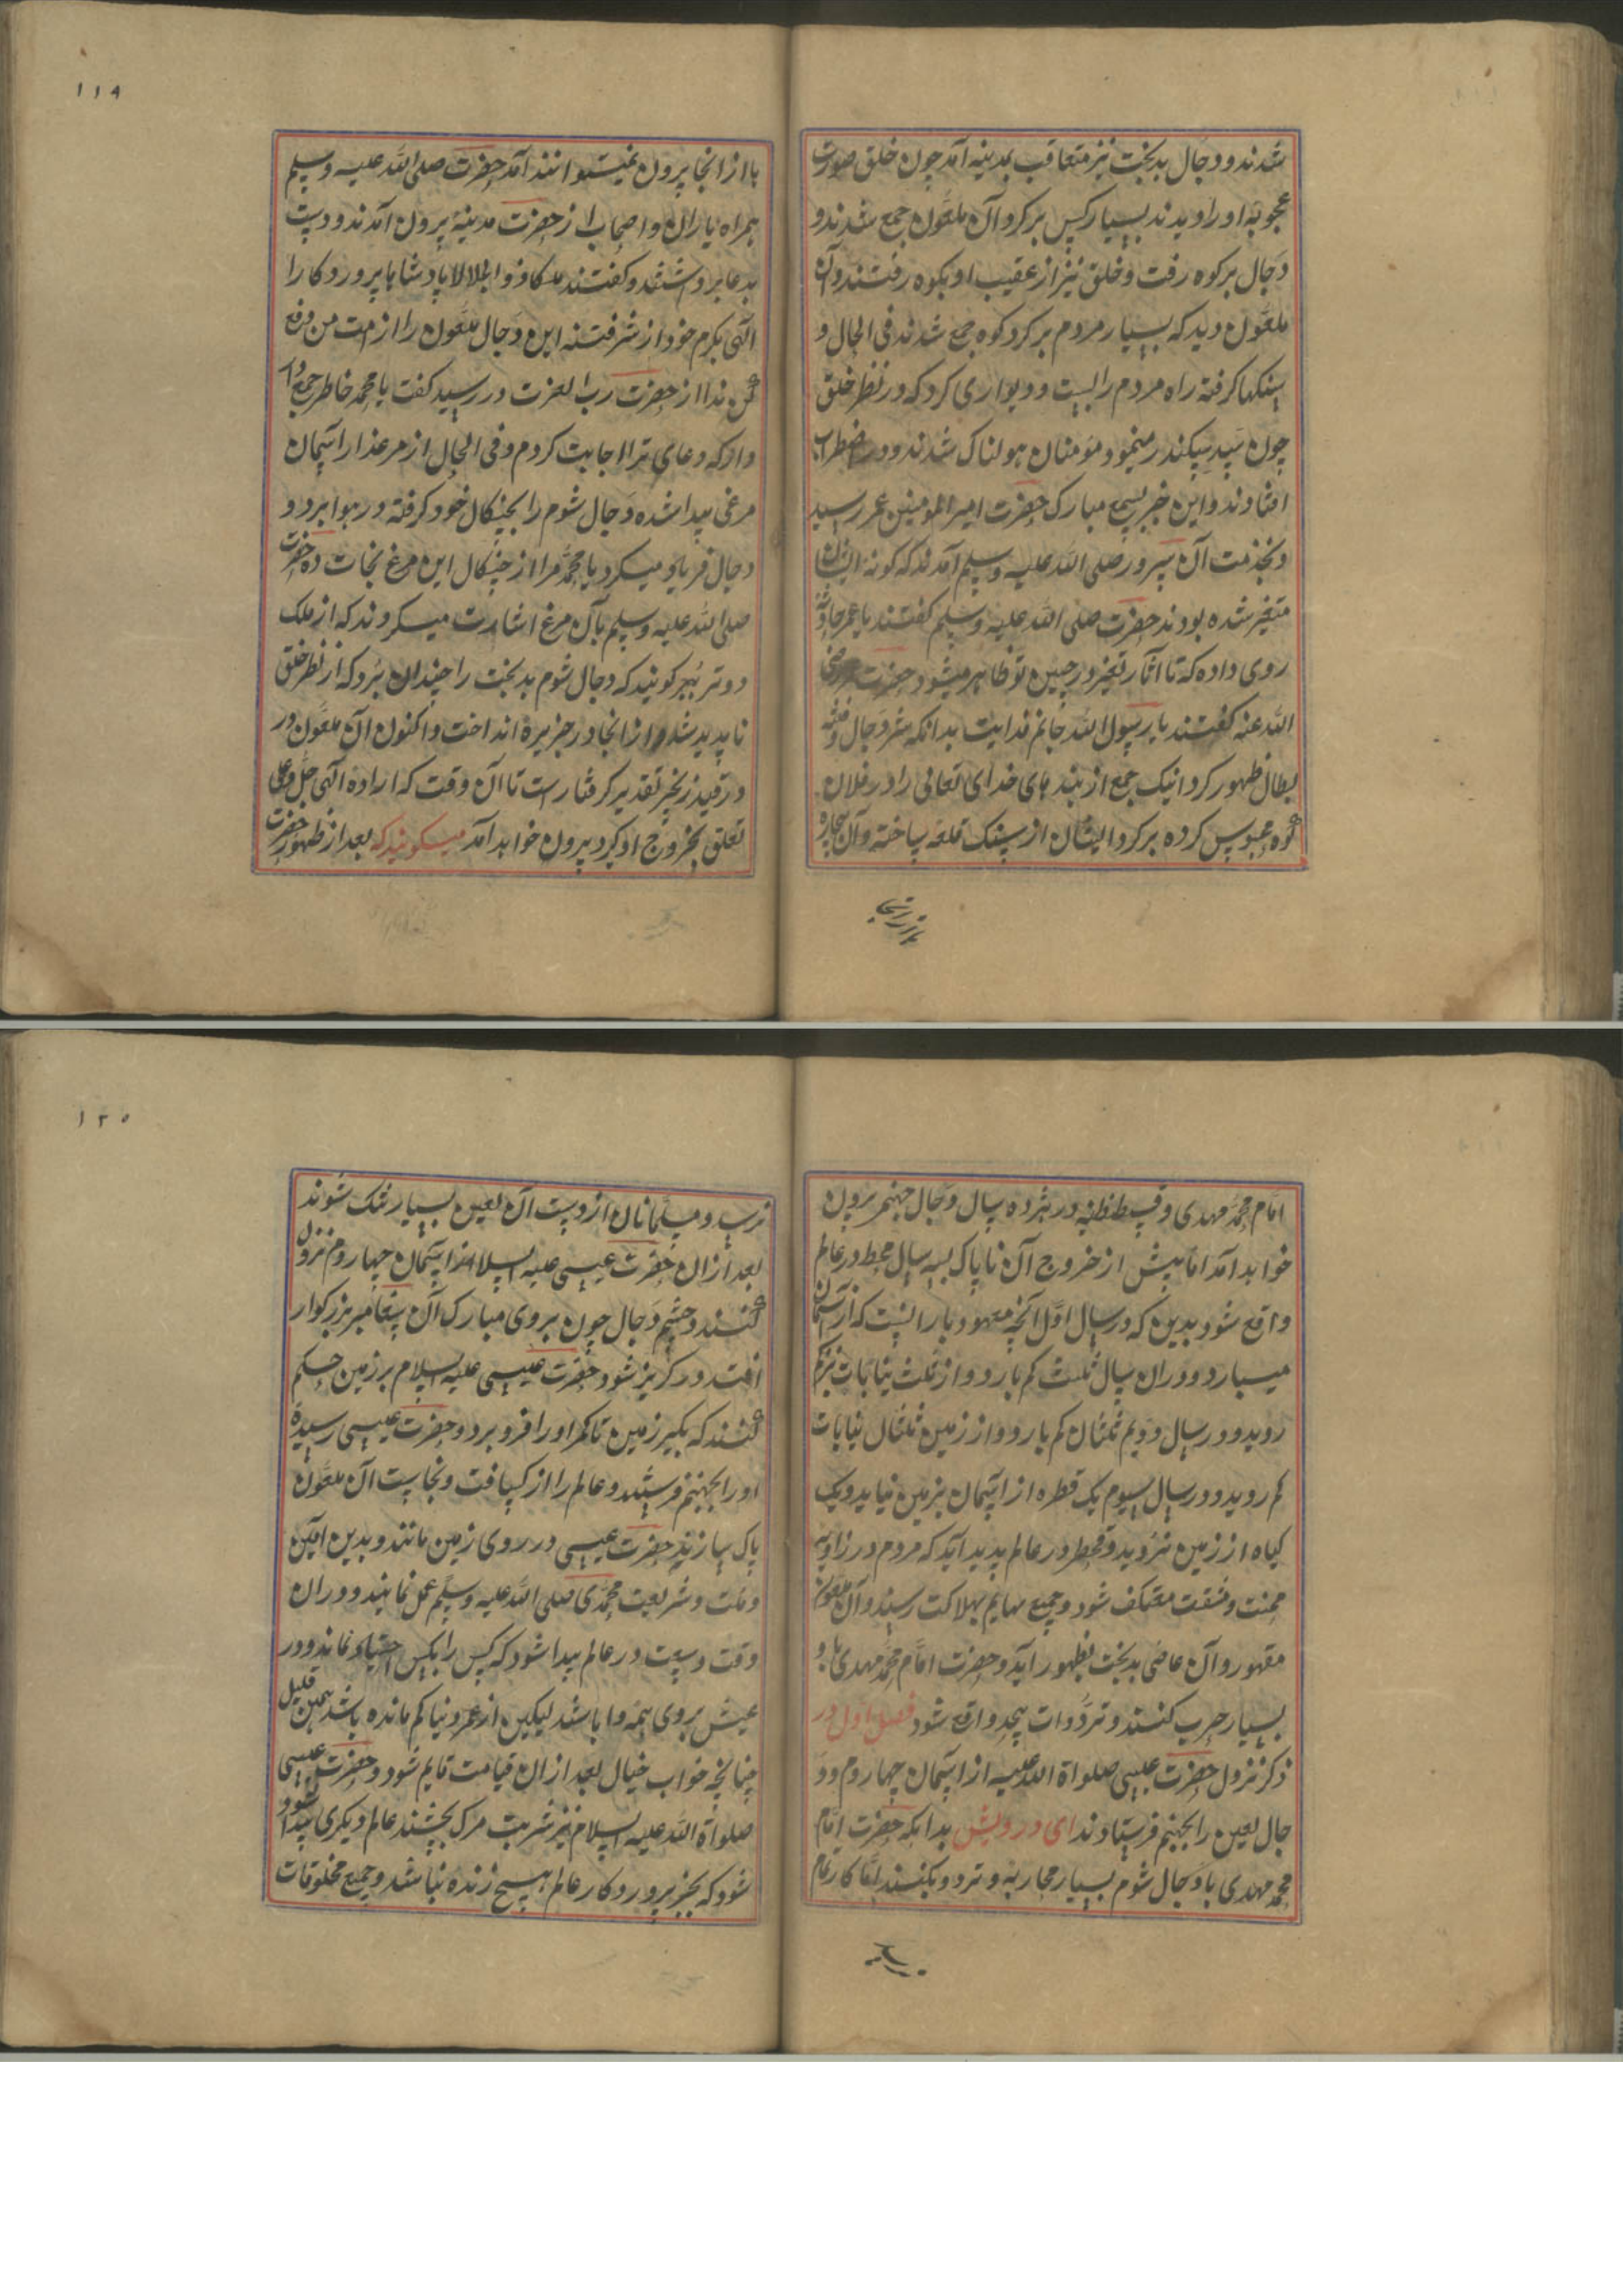 شدند و دجال بدبخت نیز متعاقب بمدینه آمد چون خلق صورت
عجوبه او را دیدند بسیار کس بر کرد آن ملعون جمع شدند و
دجال بر کوه رفت و خلق نیز از عقیب او بکوه رفتند و آن
ملعون دید که بسیار مردم بر کرد کوه جمع شدند فی الحال و
سنکها کرفته راه مردم را بست و دیواری کرد که در نظر خلق
چون سد سکندر مینمود مومنان هولناک شدند و در اضطراب
افتادند و این خبر بسمع مبارک حضرت امیر المومنین عمر رسید
و بخدمت آن سرور صلی الله علیه وسلم آمدند که کونه ایشان
متغیر شده بودند حضرت صلی الله علیه وسلم کفتند یا عمر حادثه
روی داده که تا آثار تغیر در جبین تو ظاهر میشود حضرت عمر رضی
الله عنه کفتند یا رسول الله جانم فدایت بدانکه شر دجال و فتنه
بطال ظهور کرد اینک جمع از بندهای خدای تعالی را در فلان
کوه محبوس کرده بر کرد ایشان از سنک قلعه ساخته و آن بیچاره
با از انجا
۱۱۹
با از انجا برون نمیتوانند آمد حضرت صلی الله علیه وسلم
همراه یاران و اصحاب از حضرت مدینة برون آمدند و دست
بدعا برداشتند و کفتند ملکا ذو الجلالا پادشاها پروردکارا
الهی بکرم خود از شر فتنه این دجال ملعون را از امت من دفع
کن ندا از حضرت رب العزت در رسید کفت یا محمد خاطر جمع دار
دار که دعای ترا اجابت کردم و فی الحال از مرعذار آسمان
مرغی پیدا شده دجال شوم را بچنکال خود کرفته در هوا برد و
دجال فریاد میکرد یا محمد مرا از چنکال این مرغ نجات ده حضرت
صلی الله علیه وسلم بآن مرغ اشارت میکردند که از ملک
دوتر ببر کویند که دجال شوم بدبخت را چندان برد که از نظر خلق
ناپدید شد از انجا در جزیرة انداخت و اکنون آن ملعون در
در قید زنجیر تقدیر کرفتار است تا آن وقت که اراده الهی جل و علی
تعلق بخروج او کیرد برون خواهد آمد میکویند که بعد از ظهور حضرت
امام محمد مهدی و قسطنطنیه در هژده سال دجال جهنم برون
خواهد آمد اما پیش از خروج آن ناپاک بسه سال قحط در عالم
واقع شود بدین که در سال اول آنچه معهود بارانست که از آسمان
میبارد و در ان سال ثلث کم بارد و از ثلث نباتات نیز کم
روید و در سال دویم ثلثان کم بارد و از زمین ثلثان نباتات
کم روید و در سال سیوم یک قطره از آسمان بزمین نیاید و یک
کیاه از زمین نروید و قحط در عالم پدید آید که مردم در زاویه
محنت و مشقت معتکف شود و جمیع بهایم بهلاکت رسند و آن ملعون
مقهور و آن عاصی بدبخت بظهور آید و حضرت امام محمد مهدی با و
بسیار حرب کنند و تردوات بیحد واقع شود فصل اول در
ذکر نزول حضرت عیسی صلواة الله علیه از آسمان چهاروم و د
جال لعین را بجهنم فرستادند ای درویش بدانکه حضرت امام
محمد مهدی با دجال شوم بسیار محاربه و تردد بکنند اما کار تمام
نرسد
۱۲۰
نرسد و مسلمانان از دست آن لعین بسیار تنک شوند
بعد ازان حضرت عیسی علیه السلام از آسمان چهاروم نزول
کنند و چشم دجال چون بروی مبارک آن پیغامبر بزرکوار
افتد در کریز شود حضرت عیسی علیه السلام بر زمین حکم
کنند که بکیر زمین تا کمر او را فرو برد و حضرت عیسی رسیدة
او را بجهنم فرستند و عالم را از کسافت و نجاست آن ملعون
پاک سازند حضرت عیسی در روی زمین مانند و بدین آئین
و ملت و شریعت محمدی صلی الله علیه وسلم عمل نمایند و دران
وقت وسعت در عالم پیدا شود که کس را بکس احتیاد نماند و در
عیش بروی همه وا باشد لیکین از عمر دنیا کم مانده باشد همین قلیل
چنانچه خواب خیال بعد ازان قیامت قایم شود و حضرت عیسی
صلواة الله علیه السلام نیز شربت مرک بچشند عالم دیکری پیدا شود
شود که بجز پروردکار عالم هیچ زنده نباشد و جمیع مخلوقات